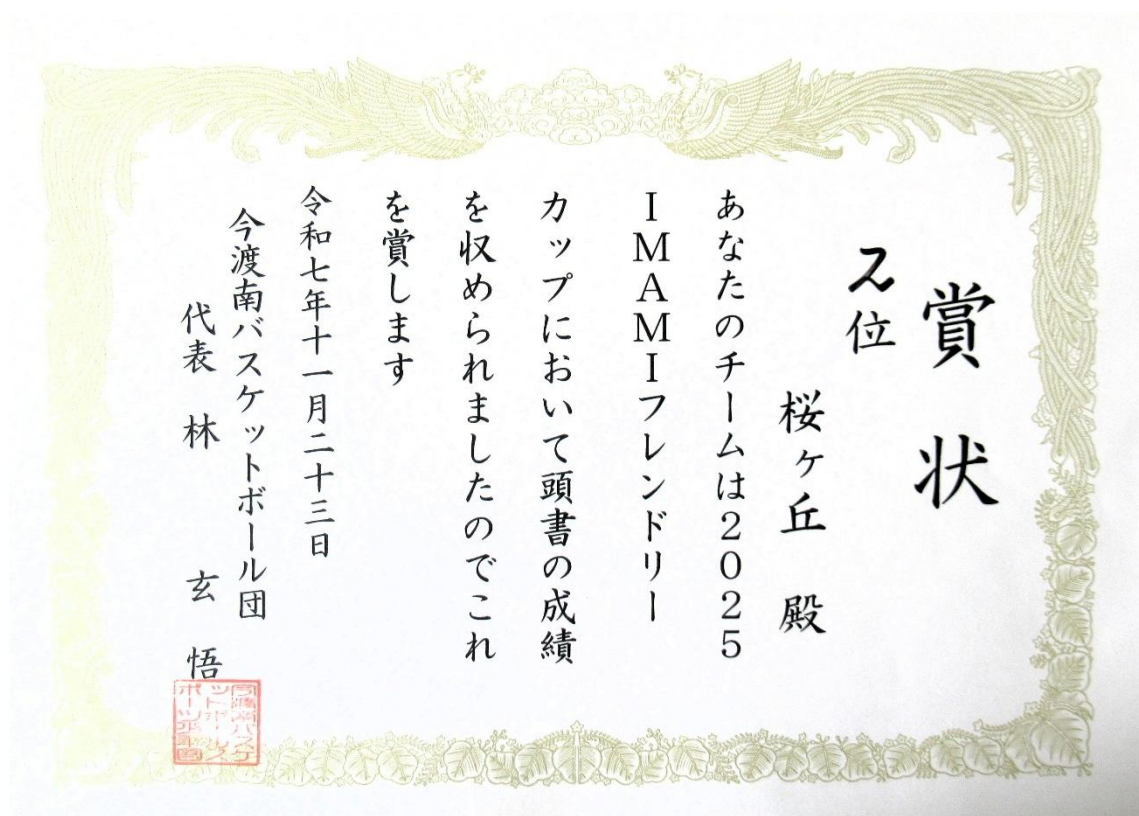 賞状
2位
桜ヶ丘 殿
あなたのチームは2025
IMAMIフレンドリー
カップにおいて頭書の成績
を収められましたのでこれ
を賞します
令和七年十一月二十三日
今渡南バスケットボール団
代表 林 玄悟
今渡南バスケ
ットボールス
ポーツ少年団